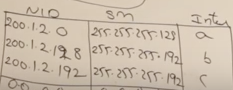 NID SM Inter
200.1.2.0 255.255.255.128 a
200.1.2.128 255.255.255.192 b
200.1.2.192 255.255.255.192 c